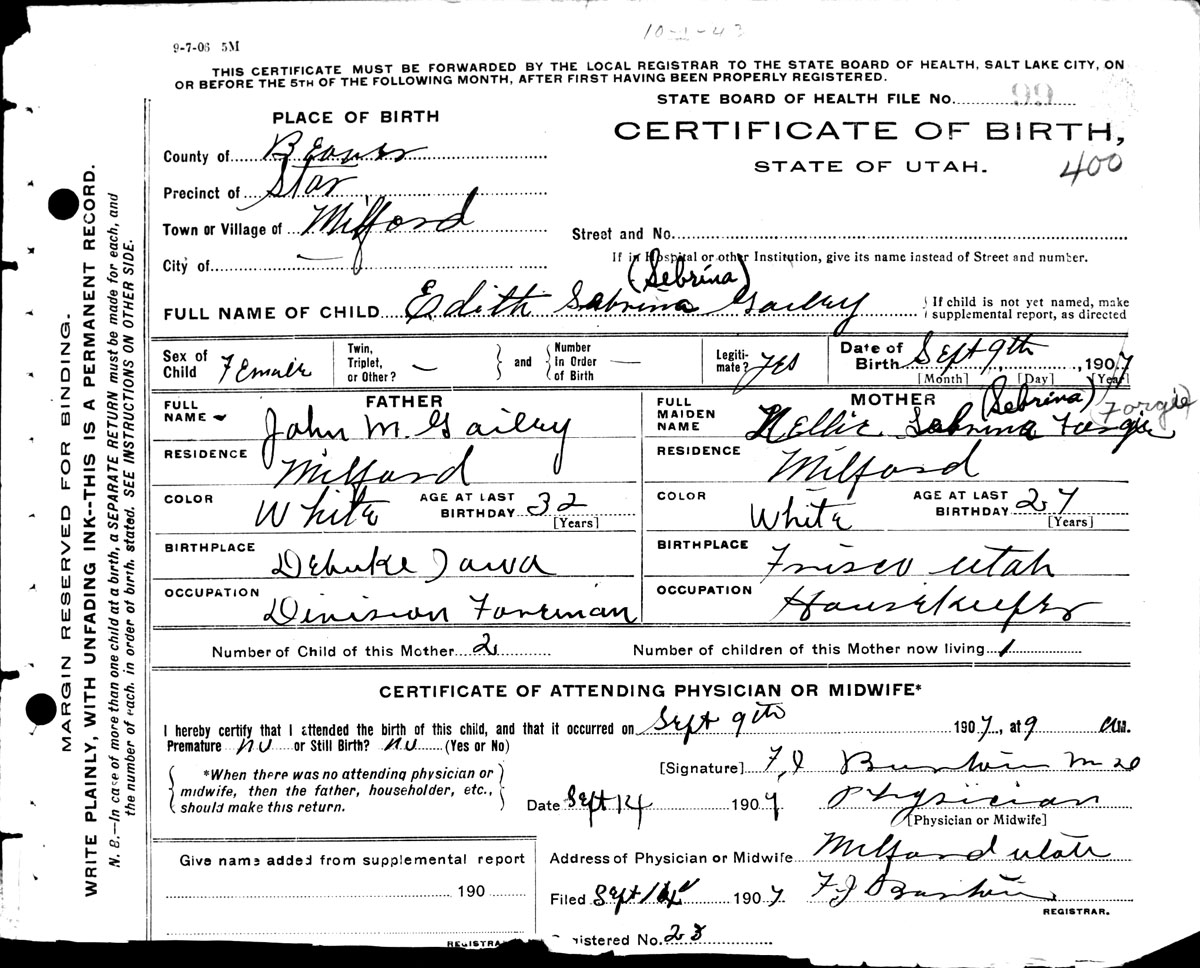 10-1-43
9-7-06 5M
THIS CERTIFICATE MUST BE FORWARDED BY THE LOCAL REGISTRAR TO THE STATE BOARD OF HEALTH, SALT LAKE CITY, ON
OR BEFORE THE 5TH OF THE FOLLOWING MONTH, AFTER FIRST HAVING BEEN PROPERLY REGISTERED.
STATE BOARD OF HEALTH FILE No. 99
PLACE OF BIRTH
CERTIFICATE OF BIRTH,
STATE OF UTAH.
400
County of Beaver
Precinct of Star
Town or Village of Milford
Street and No.
City of —
If in Hospital or other Institution, give its name instead of Street and number.
(Sebrina)
FULL NAME OF CHILD Edith Sabrina Gailey
If child is not yet named, make
supplemental report, as directed
Sex of Child Female
Twin, Triplet, or Other? —
and
Number In Order of Birth —
Legitimate? yes
Date of Birth Sept 9th, 1907
[Month] [Day] [Year]
FATHER
FULL NAME John M. Gailey
RESIDENCE Milford
COLOR White
AGE AT LAST BIRTHDAY 32
[Years]
BIRTHPLACE Debuke Iowa
OCCUPATION Division Foreman
MOTHER
(Sebrina) Forgie
FULL MAIDEN NAME Nellie Sabrina Forgie
RESIDENCE Milford
COLOR White
AGE AT LAST BIRTHDAY 27
[Years]
BIRTHPLACE Frisco Utah
OCCUPATION Housekeeper
Number of Child of this Mother 2
Number of children of this Mother now living 1
CERTIFICATE OF ATTENDING PHYSICIAN OR MIDWIFE*
I hereby certify that I attended the birth of this child, and that it occurred on Sept 9th 1907, at 9 am.
Premature no or Still Birth? no (Yes or No)
*When there was no attending physician or
midwife, then the father, householder, etc.,
should make this return.
[Signature] F. J
Date Sept 14 1907
Physician
[Physician or Midwife]
Give name added from supplemental report
190
REGISTRA
Address of Physician or Midwife Milford Utah
Filed Sept 14 1907 F J
REGISTRAR.
istered No. 23
MARGIN RESERVED FOR BINDING.
WRITE PLAINLY, WITH UNFADING INK--THIS IS A PERMANENT RECORD.
N. B.—In case of more than one child at a birth, a SEPARATE RETURN must be made for each, and
the number of each, in order of birth, stated. SEE INSTRUCTIONS ON OTHER SIDE.